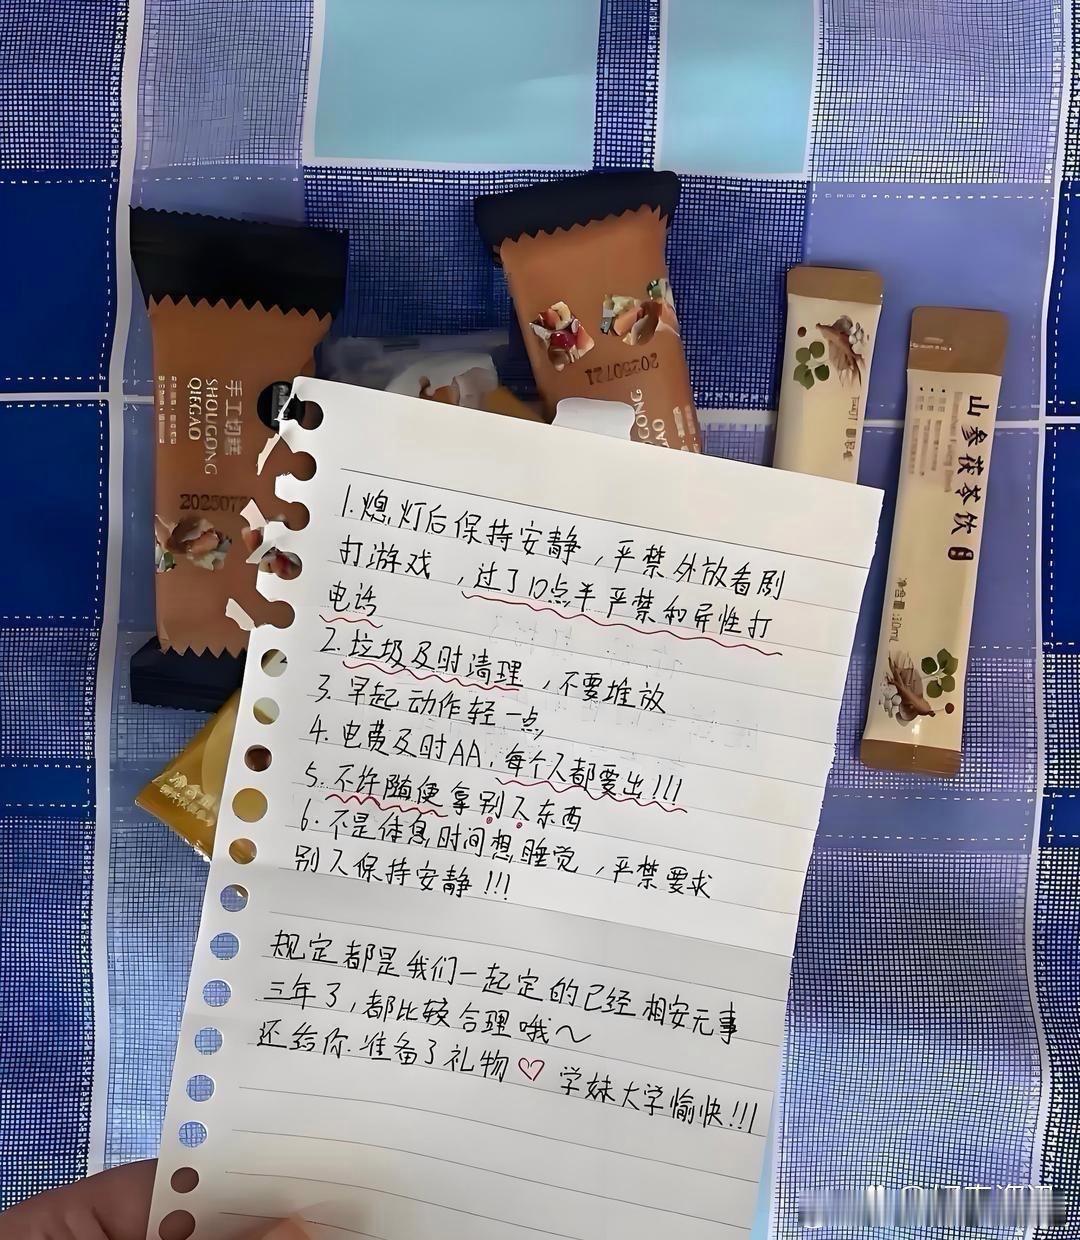 手工切糕
SHOUGONG
QIEGAO
2025072
20250721
GONG
GAO
山参茯苓饮
净含量:30ml
1.熄灯后保持安静，严禁外放看剧
打游戏，过了10点半严禁和异性打
电话
2.垃圾及时清理，不要堆放
3.早起动作轻一点
4.电费及时AA，每个人都要出!!!
5.不许随便拿别人东西
6.不是休息时间想睡觉，严禁要求
别人保持安静!!!
规定都是我们一起定的已经相安无事
三年了，都比较合理哦～
还给你准备了礼物♡ 学妹大学愉快!!!